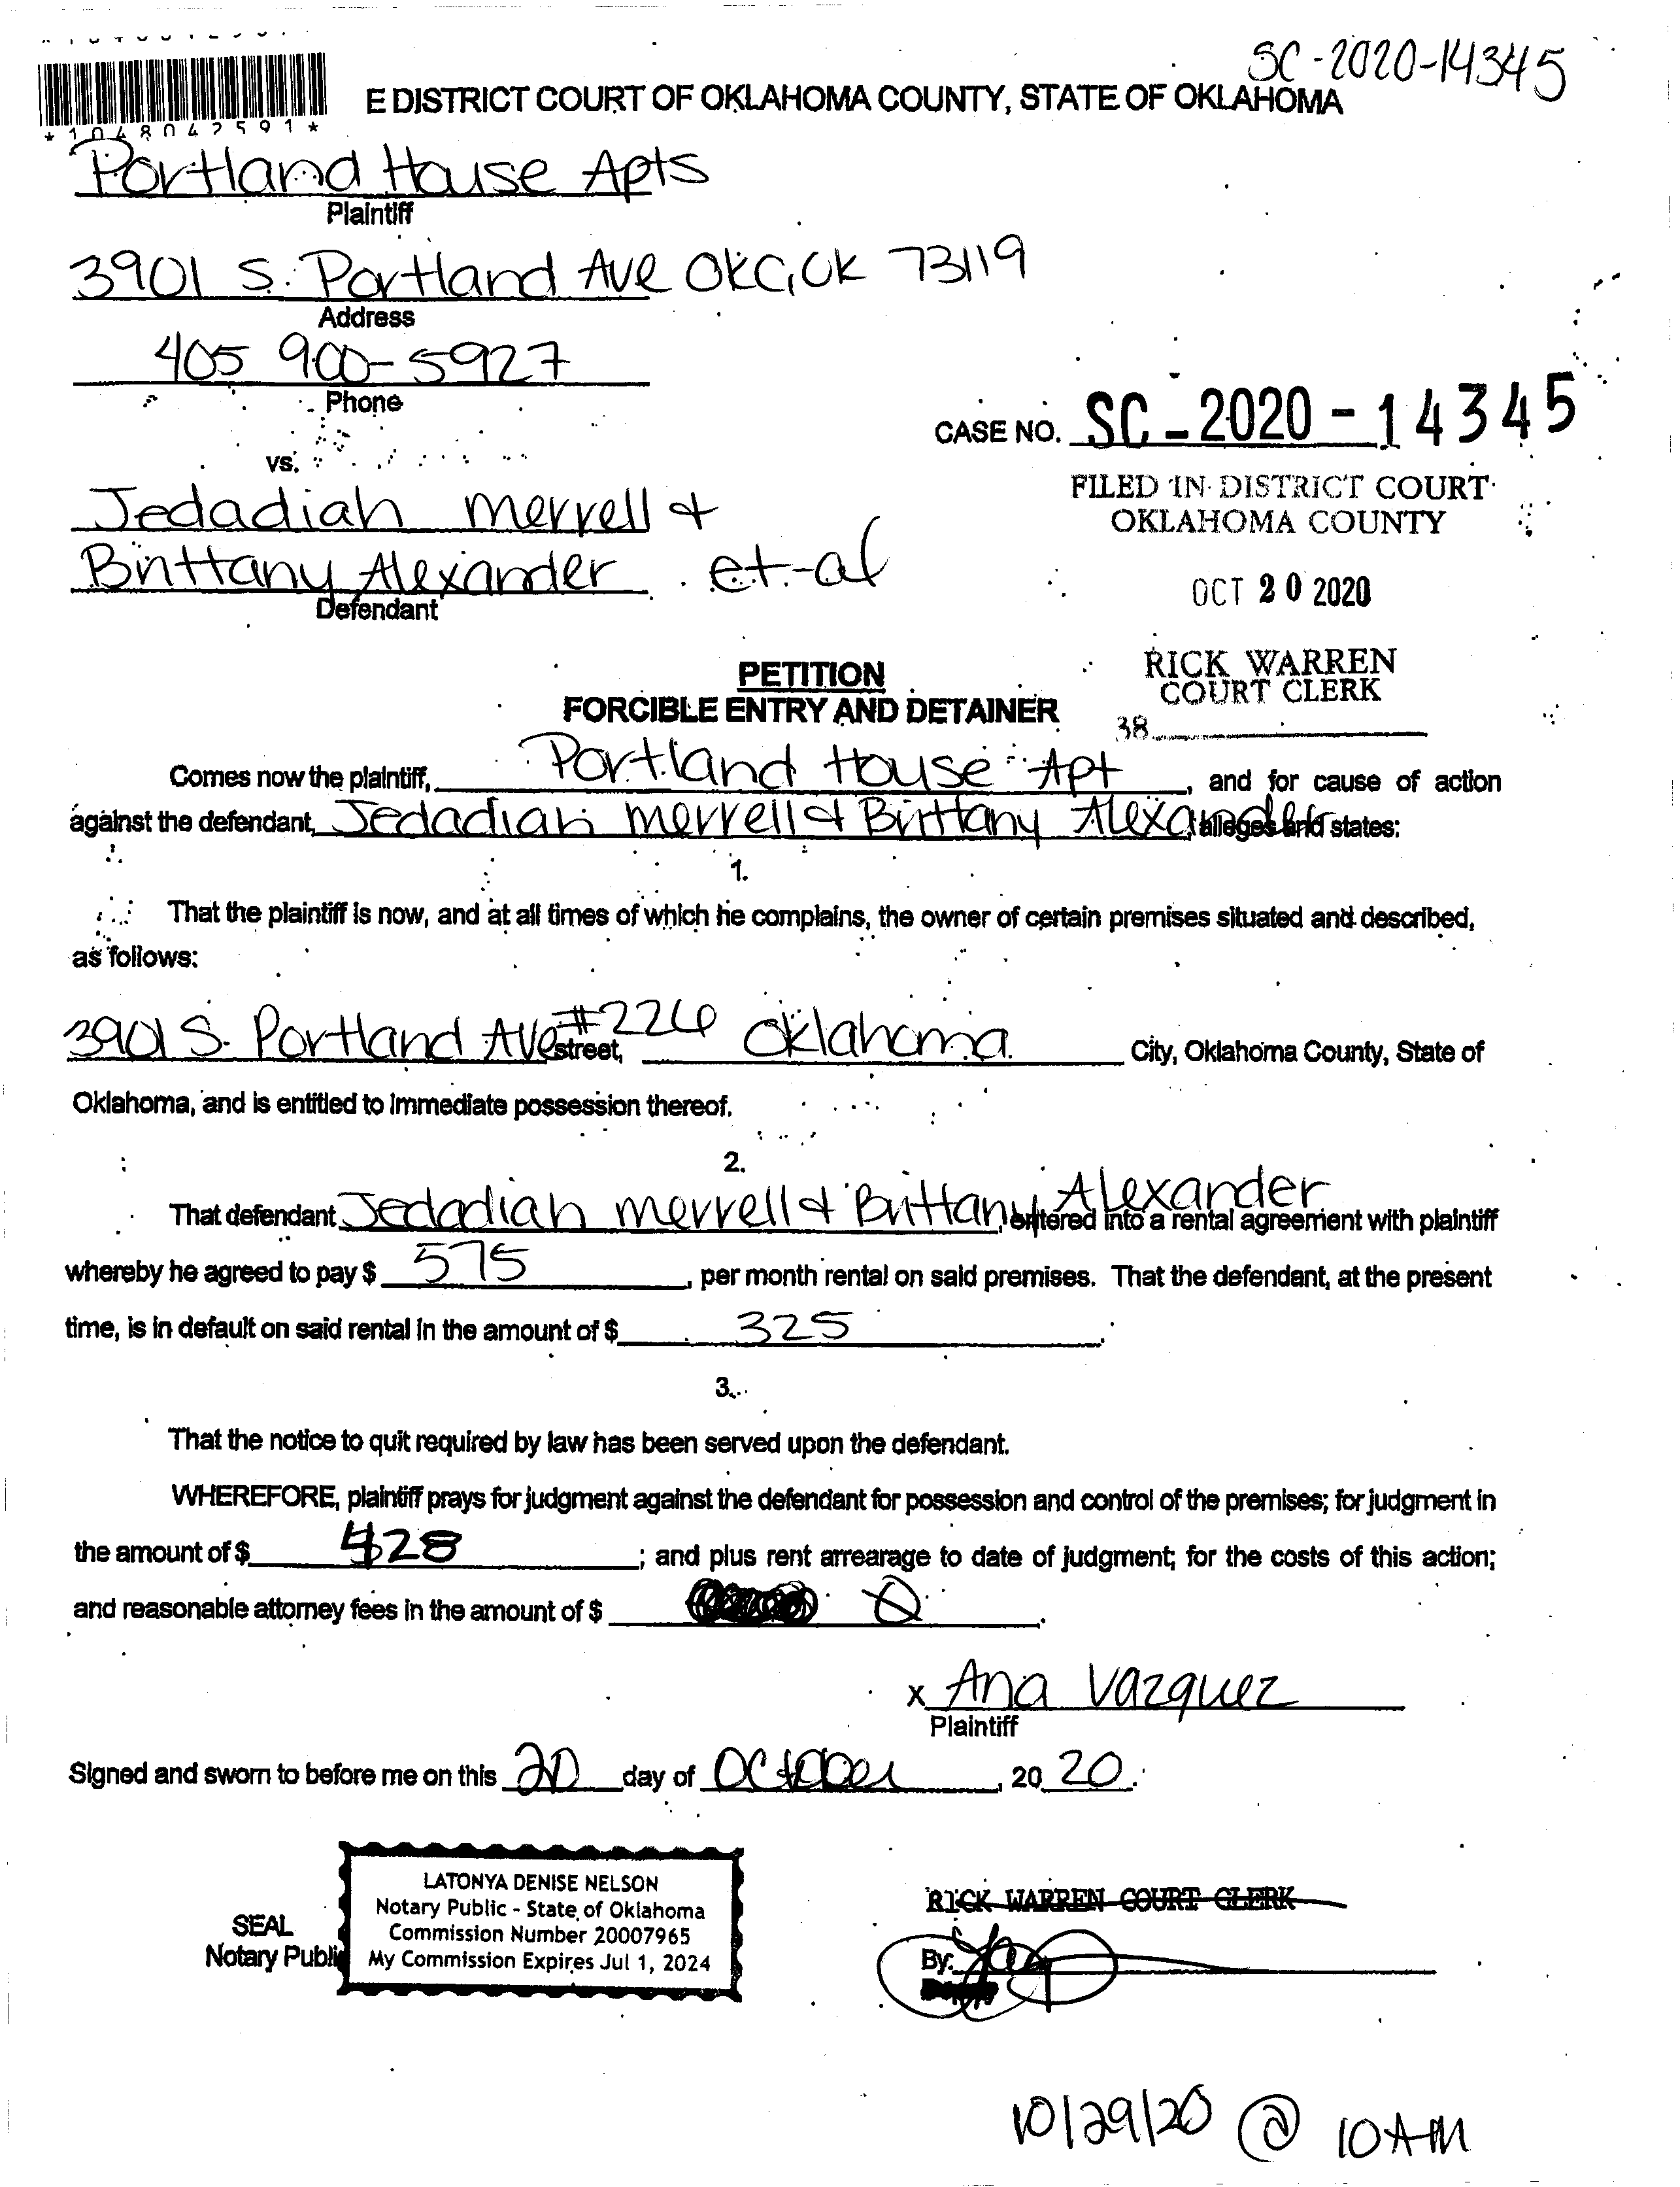 SC-2020-14345
*1048042591*
E DISTRICT COURT OF OKLAHOMA COUNTY, STATE OF OKLAHOMA
Portland House Apts
Plaintiff
3901 S. Portland Ave OKC, OK 73119
Address
405 900-5927
Phone
CASE NO. SC-2020-14345
vs.
FILED IN DISTRICT COURT
OKLAHOMA COUNTY
Jedadiah Merrell &
Brittany Alexander et-al
Defendant
OCT 20 2020
RICK WARREN
COURT CLERK
38
PETITION
FORCIBLE ENTRY AND DETAINER
Comes now the plaintiff, Portland House Apt, and for cause of action
against the defendant, Jedadiah Merrell & Brittany Alexander, alleges and states:
1.
That the plaintiff is now, and at all times of which he complains, the owner of certain premises situated and described,
as follows:
3901 S. Portland Ave #226 street, Oklahoma City, Oklahoma County, State of
Oklahoma, and is entitled to immediate possession thereof.
2.
That defendant Jedadiah Merrell & Brittany Alexander, entered into a rental agreement with plaintiff
whereby he agreed to pay $ 575, per month rental on said premises. That the defendant, at the present
time, is in default on said rental in the amount of $ 325.
3.
That the notice to quit required by law has been served upon the defendant.
WHEREFORE, plaintiff prays for judgment against the defendant for possession and control of the premises; for judgment in
the amount of $ 428; and plus rent arrearage to date of judgment; for the costs of this action;
and reasonable attorney fees in the amount of $ 0.
x Ana Vazquez
Plaintiff
Signed and sworn to before me on this 20 day of October, 2020.
LATONYA DENISE NELSON
Notary Public - State of Oklahoma
Commission Number 20007965
My Commission Expires Jul 1, 2024
SEAL
Notary Public
RICK WARREN COURT CLERK
By:
10/29/20 @ 10AM